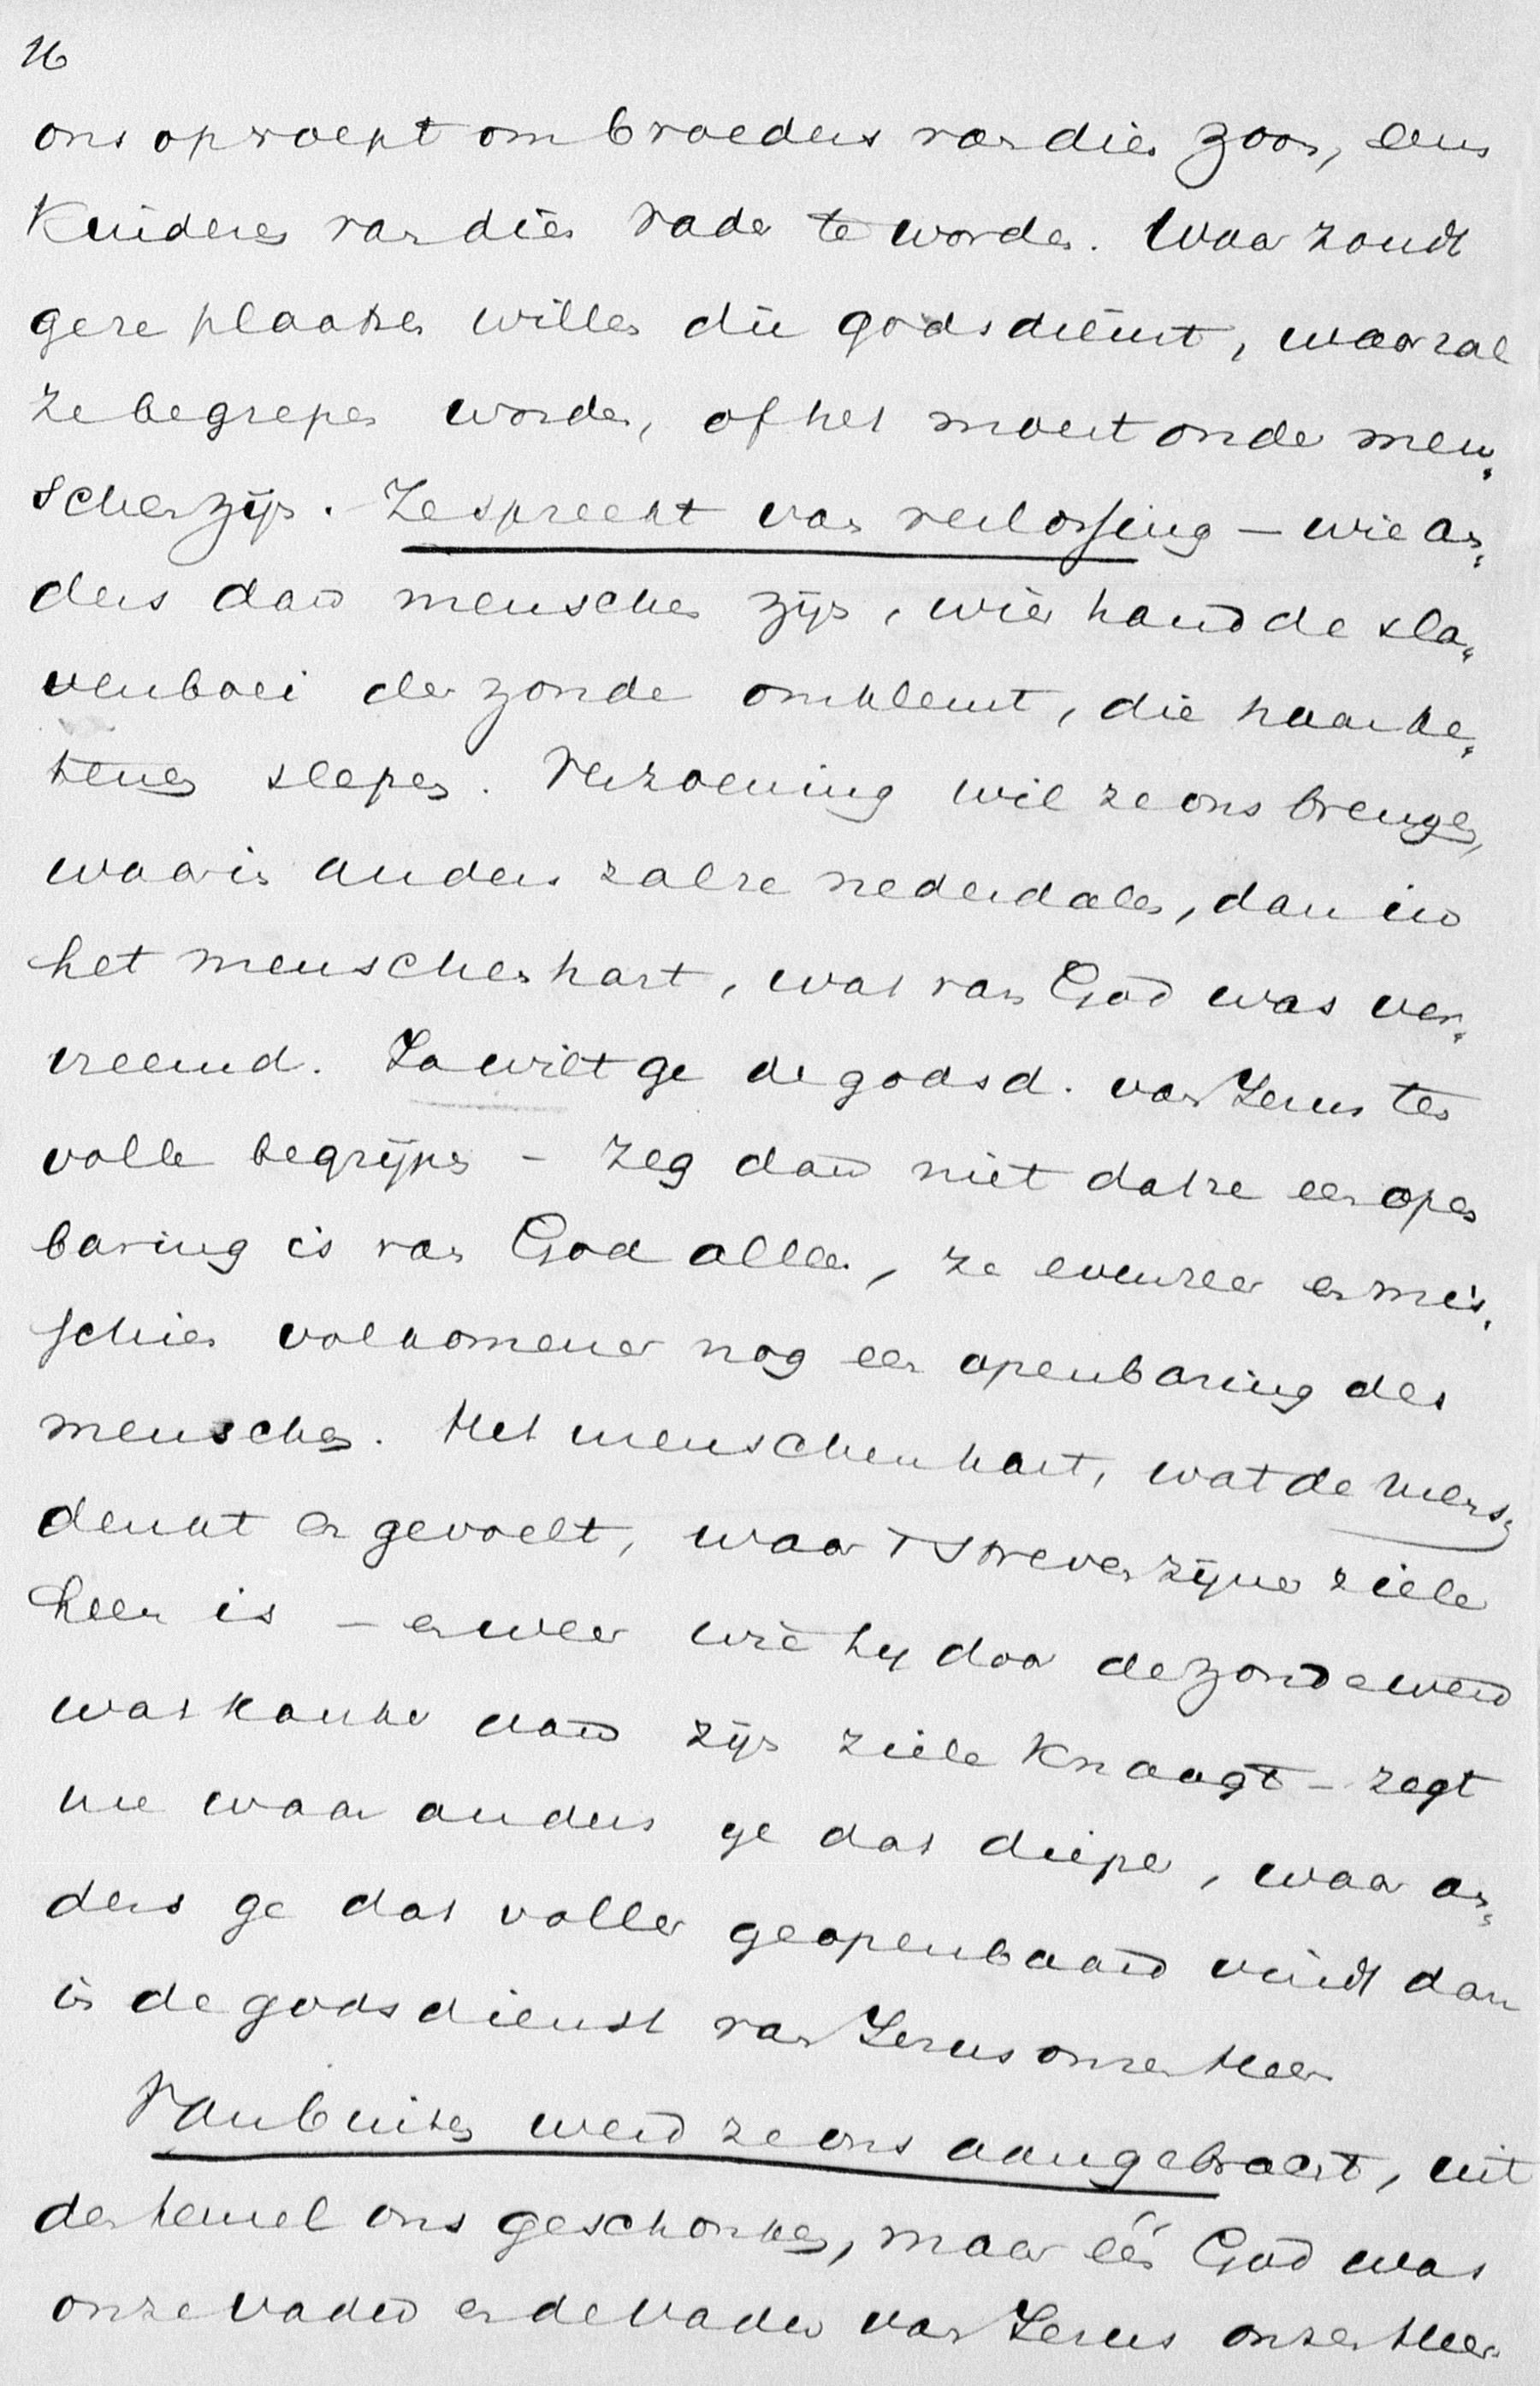 26
ons oproept om broeders van dien zoon, eens
Kinderen van dien Vader te worden. Waar zoudt
ge ze plaatsen willen die godsdienst, waar zal
ze begrepen worden, of het moest onder men„
schen zijn. Ze spreekt van verlossing – wie an„
ders dan menschen zijn, wier hand de sla„
venboei der zonde omklemt, die haar ke„
tenen slepen. Verzoening wil ze ons brengen,
waarin anders zal ze nederdalen, dan in
het menschenhart, wat van God was ver„
vreemd. Zo wilt ge de godsd. van Jezus ten
volle begrijpen – zeg dan niet dat ze een open
baring is van God alleen, ze evenzeer en mis„
schien volkomener nog een openbaring des
menschen. Het menschenhart, wat de mensch
denkt en gevoelt, waar 't streven zijner ziele
heen is – en weer wie hij door de zonde werd
wat kanker aan zijn ziele knaagt – zegt
me waar anders ge dat dieper, waar an„
ders ge dat voller geopenbaard vindt dan
in de godsdienst van Jezus onzen Heer
Van buiten werd ze ons aangebracht, uit
den hemel ons geschonken, maar één God was
onze vader en de vader van Jezus onzen Heer